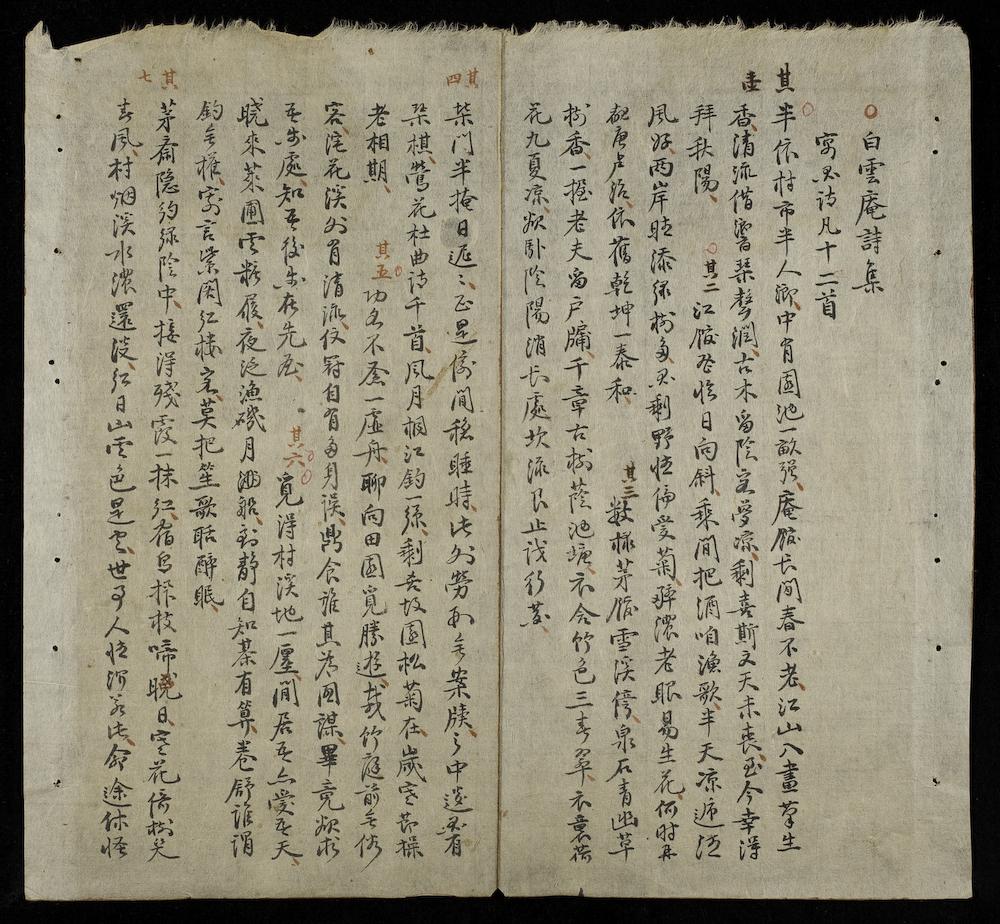 白雲庵詩集
寓興詩凡十二首
其壹
半依村市半人鄉中有園池一畝強庵館長閒春不老江山入畫筆生
香清流借響琴聲潤古木留陰客夢涼剩喜斯文天未喪至今幸得
拜秋陽
其二 江館登臨日向斜乘閒把酒咱漁歌半天涼逓江
風好兩岸晴添綠樹多興剩野情偏愛菊琴濃老眼易生花何時再
覩唐虞治依舊乾坤一泰和
其三 數椽茅館雪溪傍泉石青幽草
樹香一握老夫留戶牖千章古樹蔭池塘衣含竹色三春翠衣裛荷
花九夏凉欲卧陰陽消長處坎流艮止識行藏
其四
柴門半掩日遲遲正是偷閒穩睡時此外勞形無案牘之中遣興有
琴棋鶯花杜曲詩千首風月桐江釣一絲剩喜故園松菊在歲寒節操
老相期
其五 功名不繫一虛舟聊向田園覓勝遊裁竹庭前無俗
客浣花溪外有清流仗冠自有多身誤鼎食誰其為國謀畢竟欲求
吾步處知吾後步在先憂
其六 覓得村溪地一廛閒居吾亦愛吾天
曉來菜圃雲粘屐夜泛漁磯月滿船到靜自知棊有算卷舒誰謂
釣無權寄言紫閣紅樓客莫把笙歌聒醉眠
其七
茅齋隱約綠陰中接得殘霞一抹紅宿鳥探枝啼曉日寒花倚樹笑
春風村烟溪水濃還淡紅日山雲色是空世事人情渾若此命途休怪